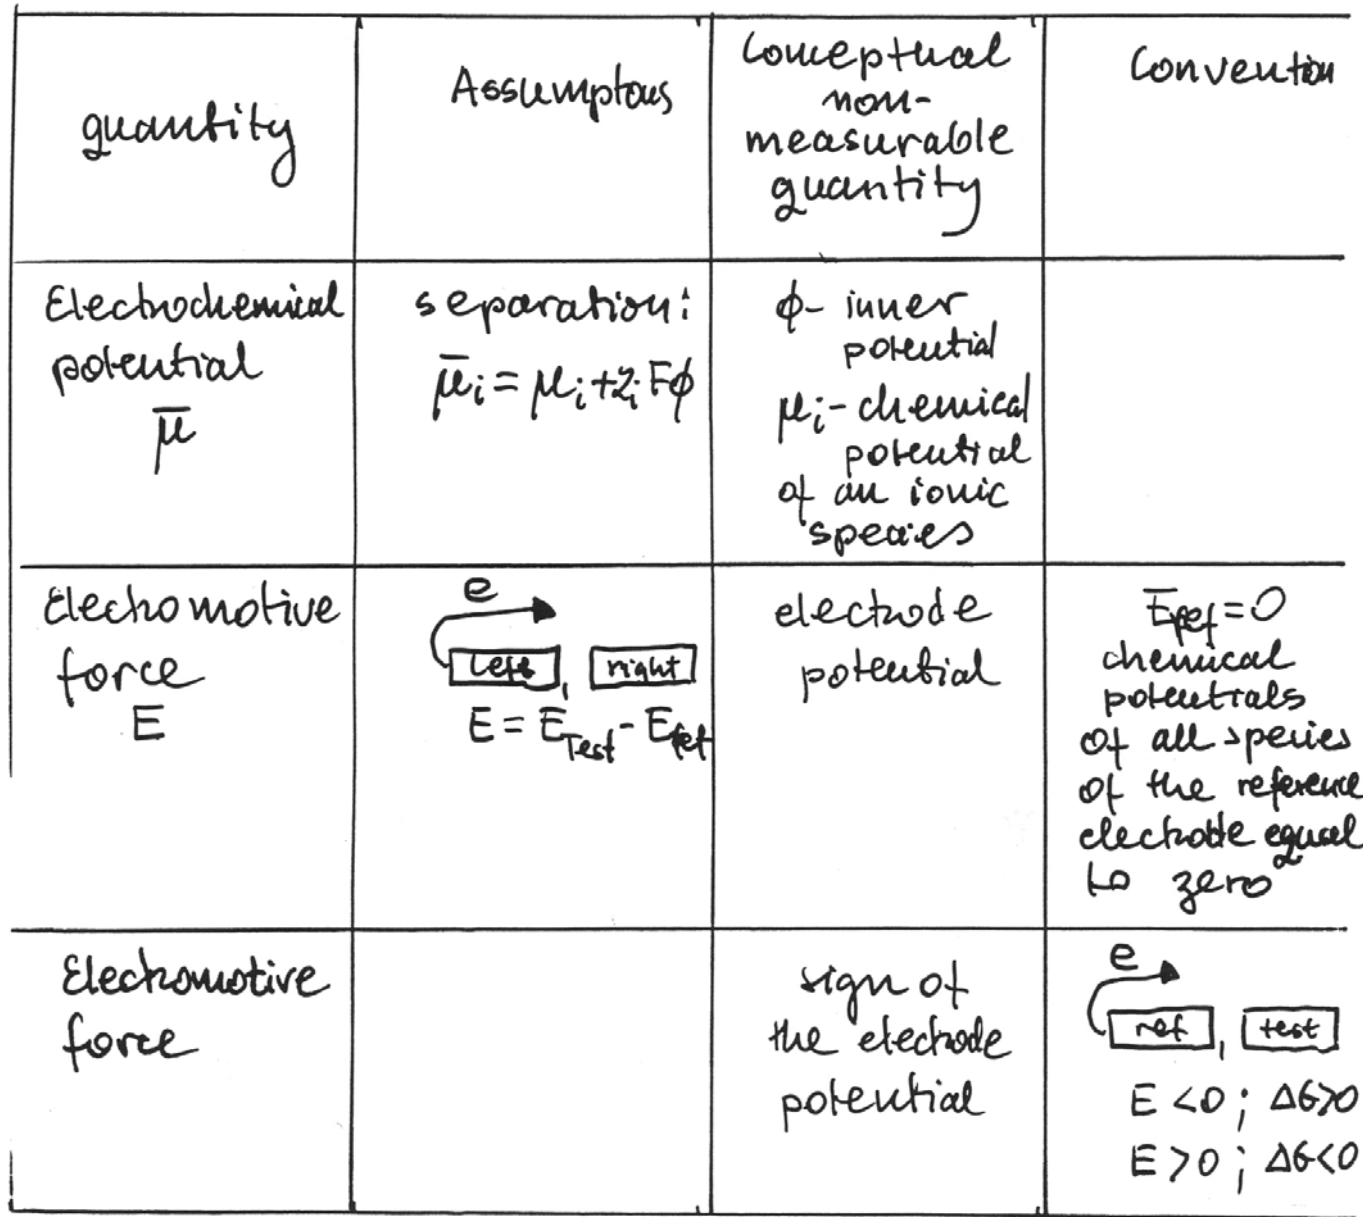 quantity
Assumptous
Conceptual
non-
measurable
quantity
Convention
Electrochemical
potential
μ̅
separation:
μ̅ᵢ = μᵢ + zᵢFϕ
ϕ- inner
potential
μᵢ- chemical
potential
of an ionic
species
Electromotive
force
E
e
left, right
E = E_Test - E_ref
electrode
potential
E_ref = 0
chemical
potentials
of all species
of the reference
electrode equal
to zero
Electromotive
force
sign of
the electrode
potential
e
ref, test
E <0 ; ΔG>0
E >0 ; ΔG<0